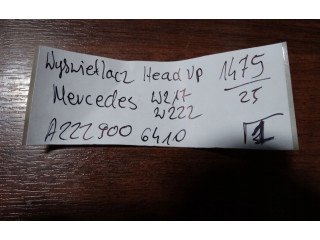 Wyświetlacz Head Up 1475/25
Mercedes W217
W222
A222 900 6410 1